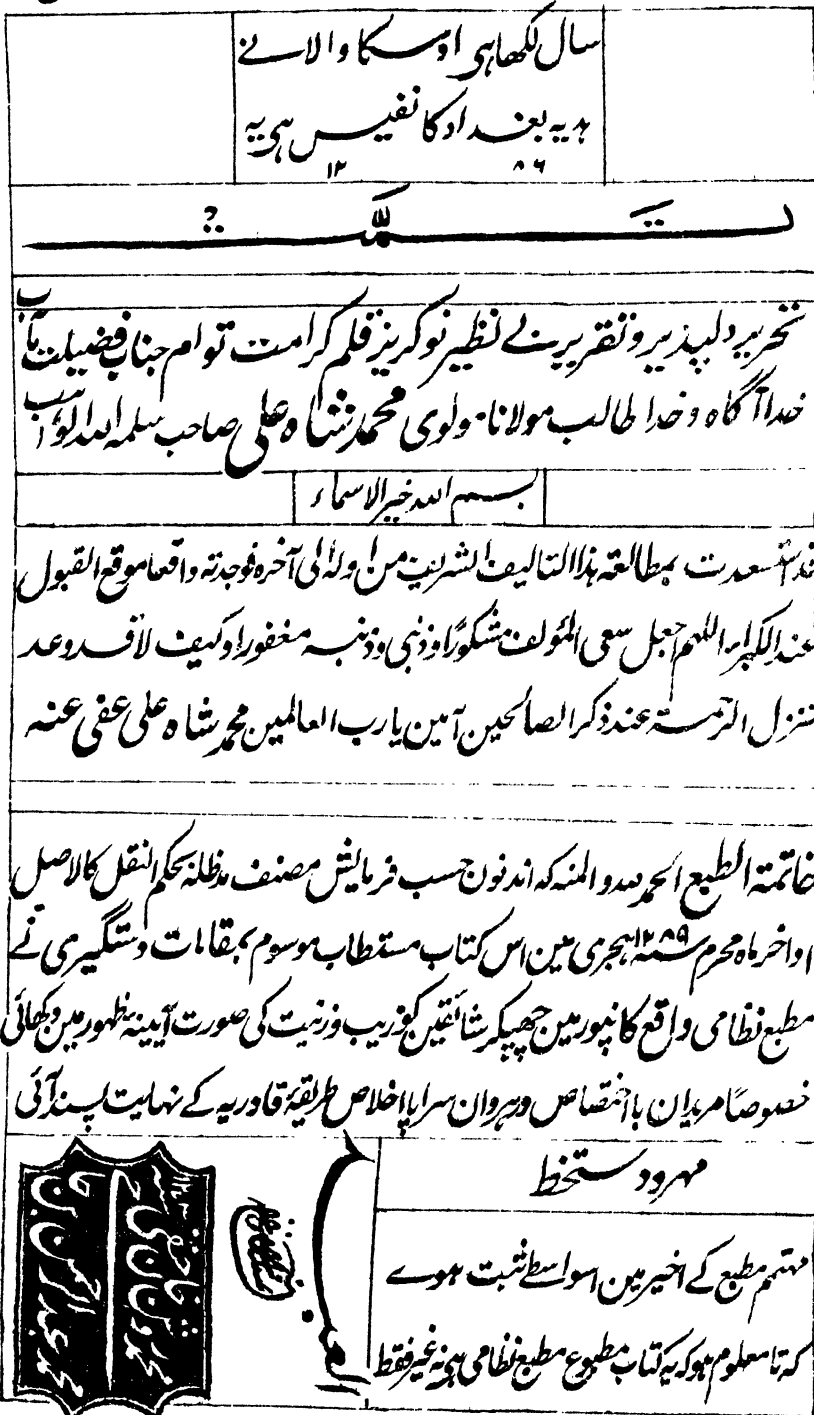 سال لکھا ہی اوسکا والا نے
ہدیہ بغداد کا نفیس ہی یہ
۱۲ ۸۶
تمّت
تحریر دلپذیر و تقریر بے نظیر نوکریز قلم کرامت توام جناب فضیلت مآب
خدا آگاہ و خدا طالب مولانا مولوی محمد شاہ علی صاحب سلمہ اللہ الواہب
بسم اللہ خیر الاسماء
قد استسعدت بمطالعۃ ہذا التالیف الشریف من اولہ الی آخرہ فوجدتہ واقعا موقع القبول
عند الکبراء اللہم اجعل سعی المؤلف مشکورًا و ذنبی و ذنبہ مغفورا و کیف لا قد وعد
تنزل الرحمۃ عند ذکر الصالحین آمین یا رب العالمین محمد شاہ علی عفی عنہ
خاتمۃ الطبع الحمد للہ و المنہ کہ اندنون حسب فرمایش مصنف مدظلہ بحکم النقل کالاصل
اواخر ماہ محرم سنہ ۱۲۸۹ ہجری مین اس کتاب مستطاب موسوم بمقامات دستگیری نے
مطبع نظامی واقع کانپور مین چھپکر شائقین کو زیب و زینت کی صورت آیینہ ظہور مین دکھائی
خصوصًا مریدان با اختصاص و رہروان سراپا اخلاص طریقۂ قادریہ کے نہایت پسند آئی
مہر و دستخط
مہتمم مطبع کے اخیر مین اسواسطے ثبت ہوے
کہ تا معلوم ہو کہ یہ کتاب مطبوع مطبع نظامی ہی نہ غیر فقط